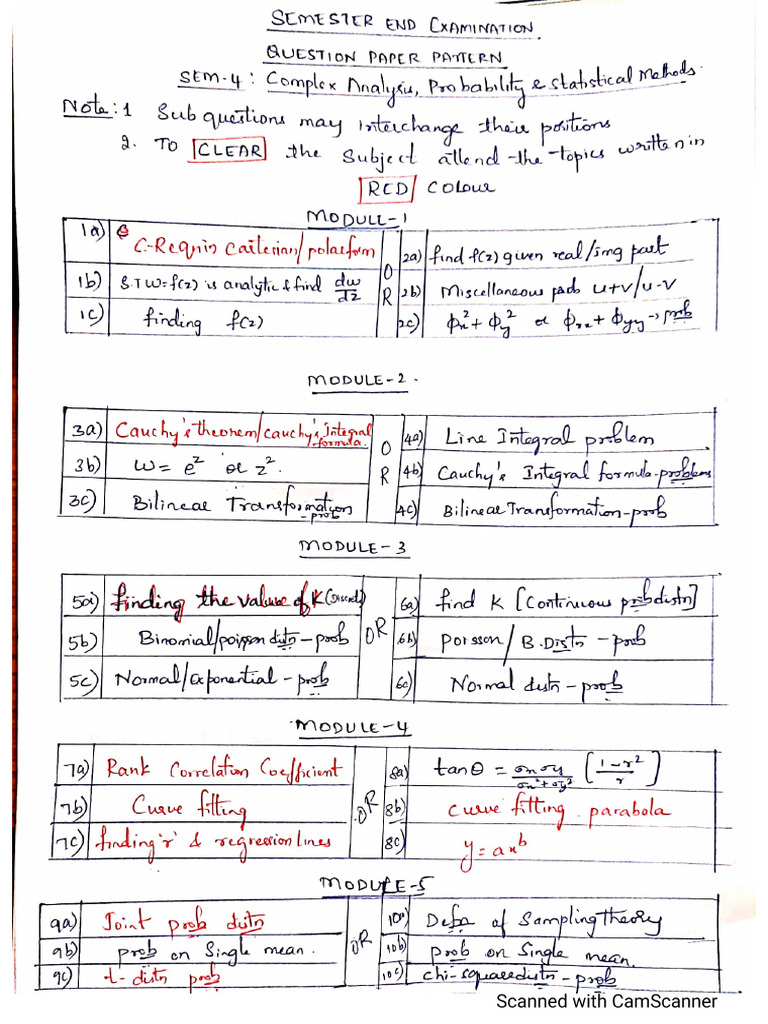 SEMESTER END EXAMINATION
QUESTION PAPER PATTERN
SEM-4 : Complex Analysis, Probability & Statistical Methods.
Note: 1 Sub questions may interchange their positions
2. TO CLEAR the Subject attend the topics written in
RED COLOUR
MODULE-1
1a) C-Reqn in Carterian/polar form
OR
2a) find f(z) given real/img part
1b) S.T W=f(z) is analytic & find dw/dz
2b) Miscellaneous prob u+v/u-v
1c) finding f(z)
2c) ϕx² + ϕy² or ϕxx + ϕyy → prob
MODULE-2.
3a) Cauchy's theorem/cauchy's Integral formula.
OR
4a) Line Integral problem
3b) W = e^z or z².
4b) Cauchy's Integral formula-problems
3c) Bilinear Transformation - prob
4c) Bilinear Transformation-prob
MODULE-3
5a) finding the value of K (Discrete)
OR
6a) find K [Continuous prob distn]
5b) Binomial/poisson distn - prob
6b) Poisson/B.Distn - prob
5c) Normal/Exponential - prob
6c) Normal distn - prob
MODULE-4
7a) Rank Correlation Coefficient
OR
8a) tanθ = σxσy/σx²+σy² [1-r²/r]
7b) Curve fitting
8b) curve fitting parabola
7c) finding 'r' & regression lines
8c) y = ax^b
MODULE-5
9a) Joint prob distn
OR
10a) Defn of Sampling theory
9b) prob on Single mean.
10b) prob on Single mean.
9c) t-distn prob
10c) chi-square distn - prob
Scanned with CamScanner